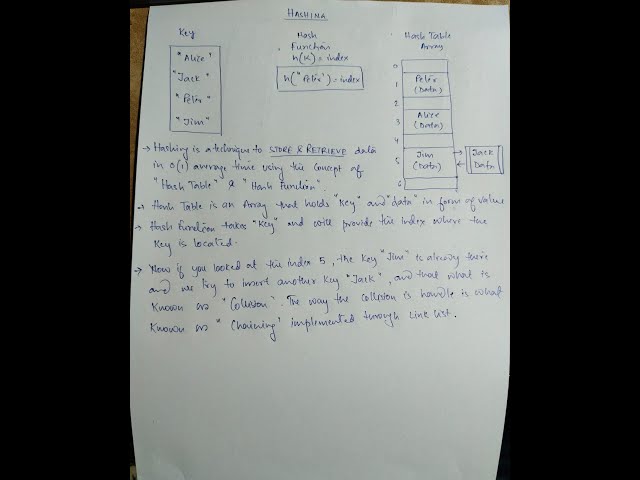 HASHING
Key
"Alice"
"Jack"
"Peter"
"Jim"
Hash
Function
h(K) = index
h("Peter") = index
Hash Table
Array
0
1 Peter
(Data)
2
3 Alice
(Data)
4
5 Jim
(Data)
6
Jack
Data
→ Hashing is a technique to STORE & RETRIEVE data
in O(1) average time using the concept of
"Hash Table" & "Hash Function".
→ Hash Table is an Array that holds "Key" and "data" in form of value
→ Hash Function takes "Key" and will provide the index where the
Key is located.
→ Now if you looked at the index 5, the key "Jim" is already there
and we try to insert another key "Jack", and that what is
known as "Collision". The way the collision is handle is what
known as "Chaining" implemented through Link list.